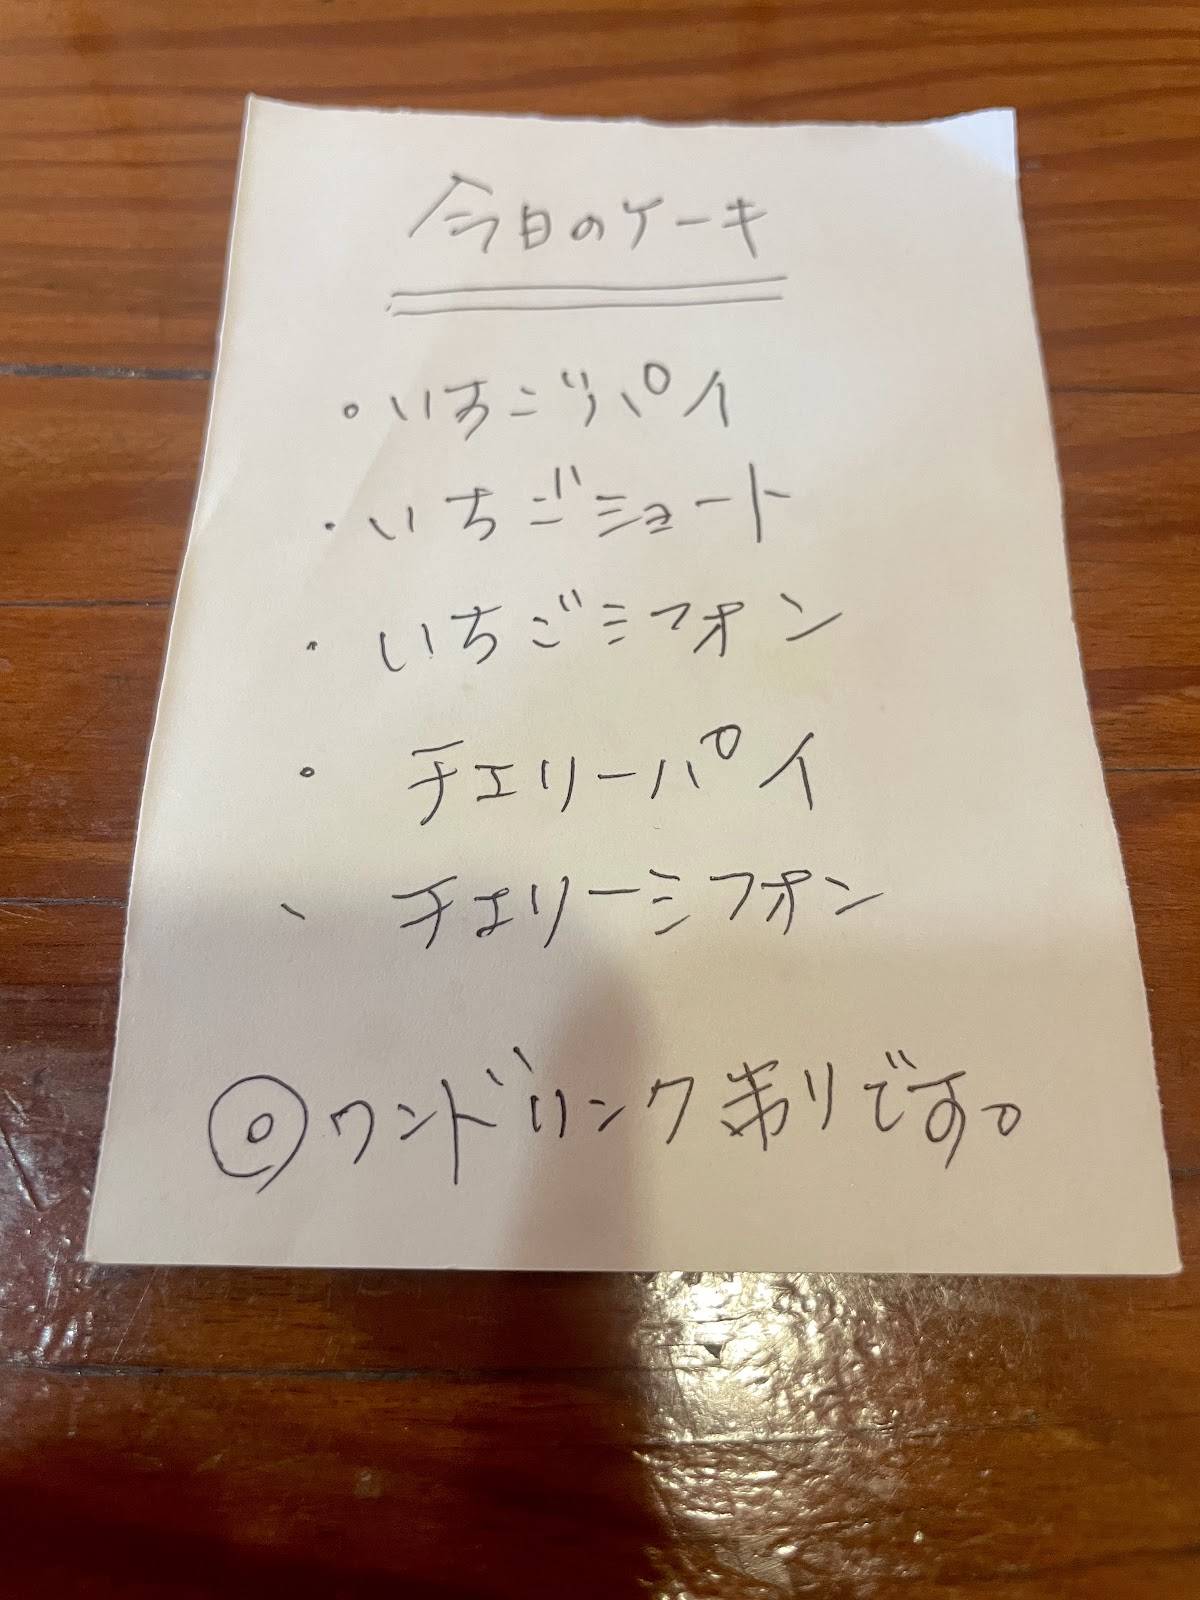 今日のケーキ
・いちごパイ
・いちごショート
・いちごシフォン
・チェリーパイ
・チェリーシフォン
◎ワンドリンク制りです。